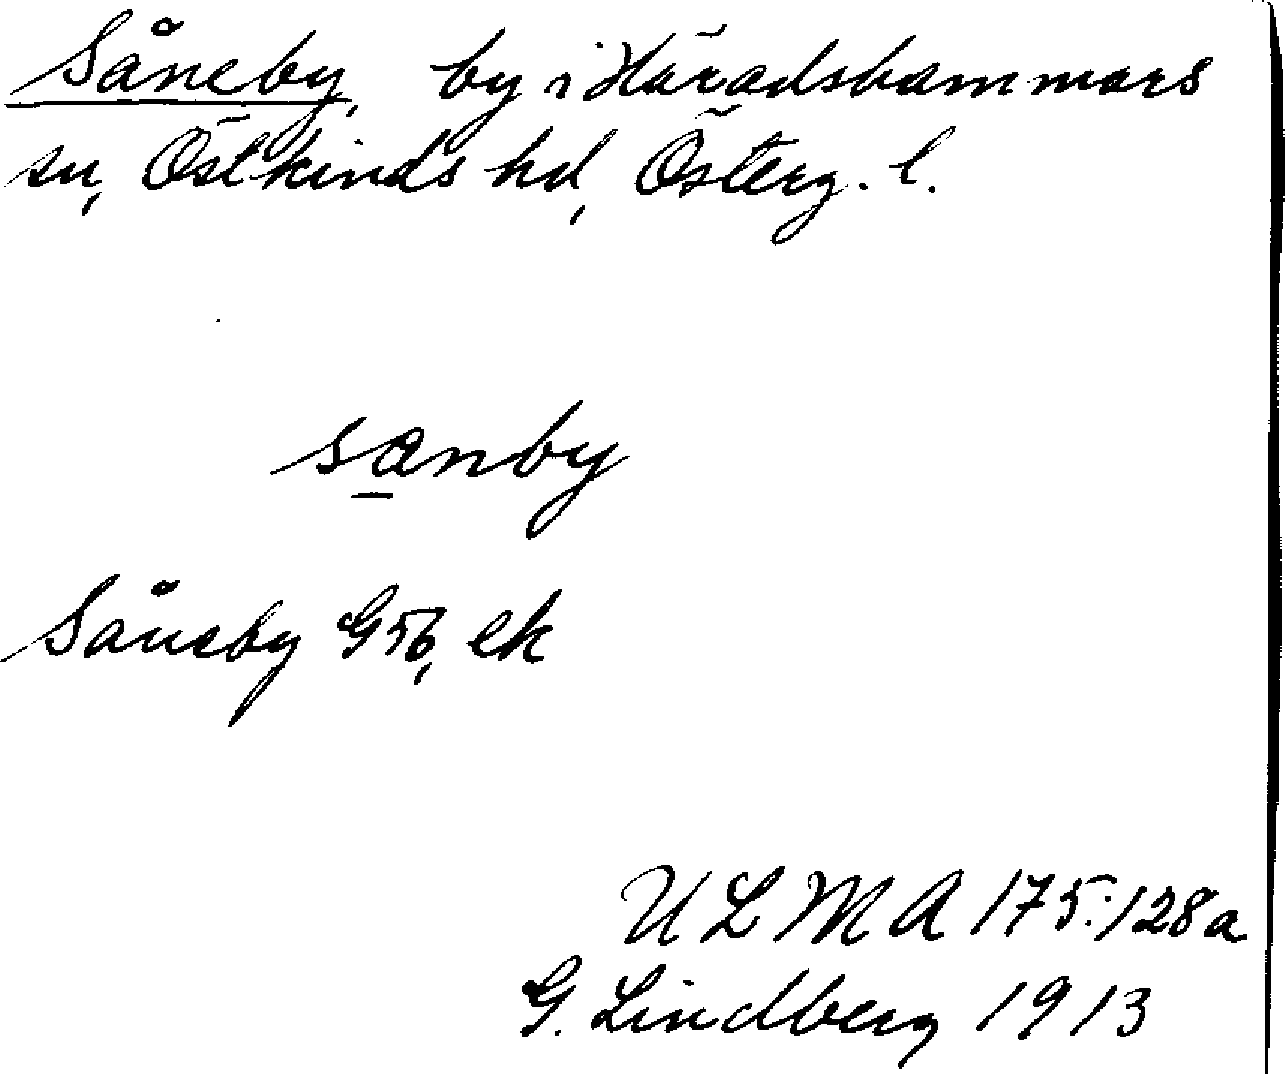 Såneby, by i Häradshammars
sn, Östkinds hd, Österg. l.
sanby
Såneby G 56, ek
ULMA 175:128a
G. Lindberg 1913